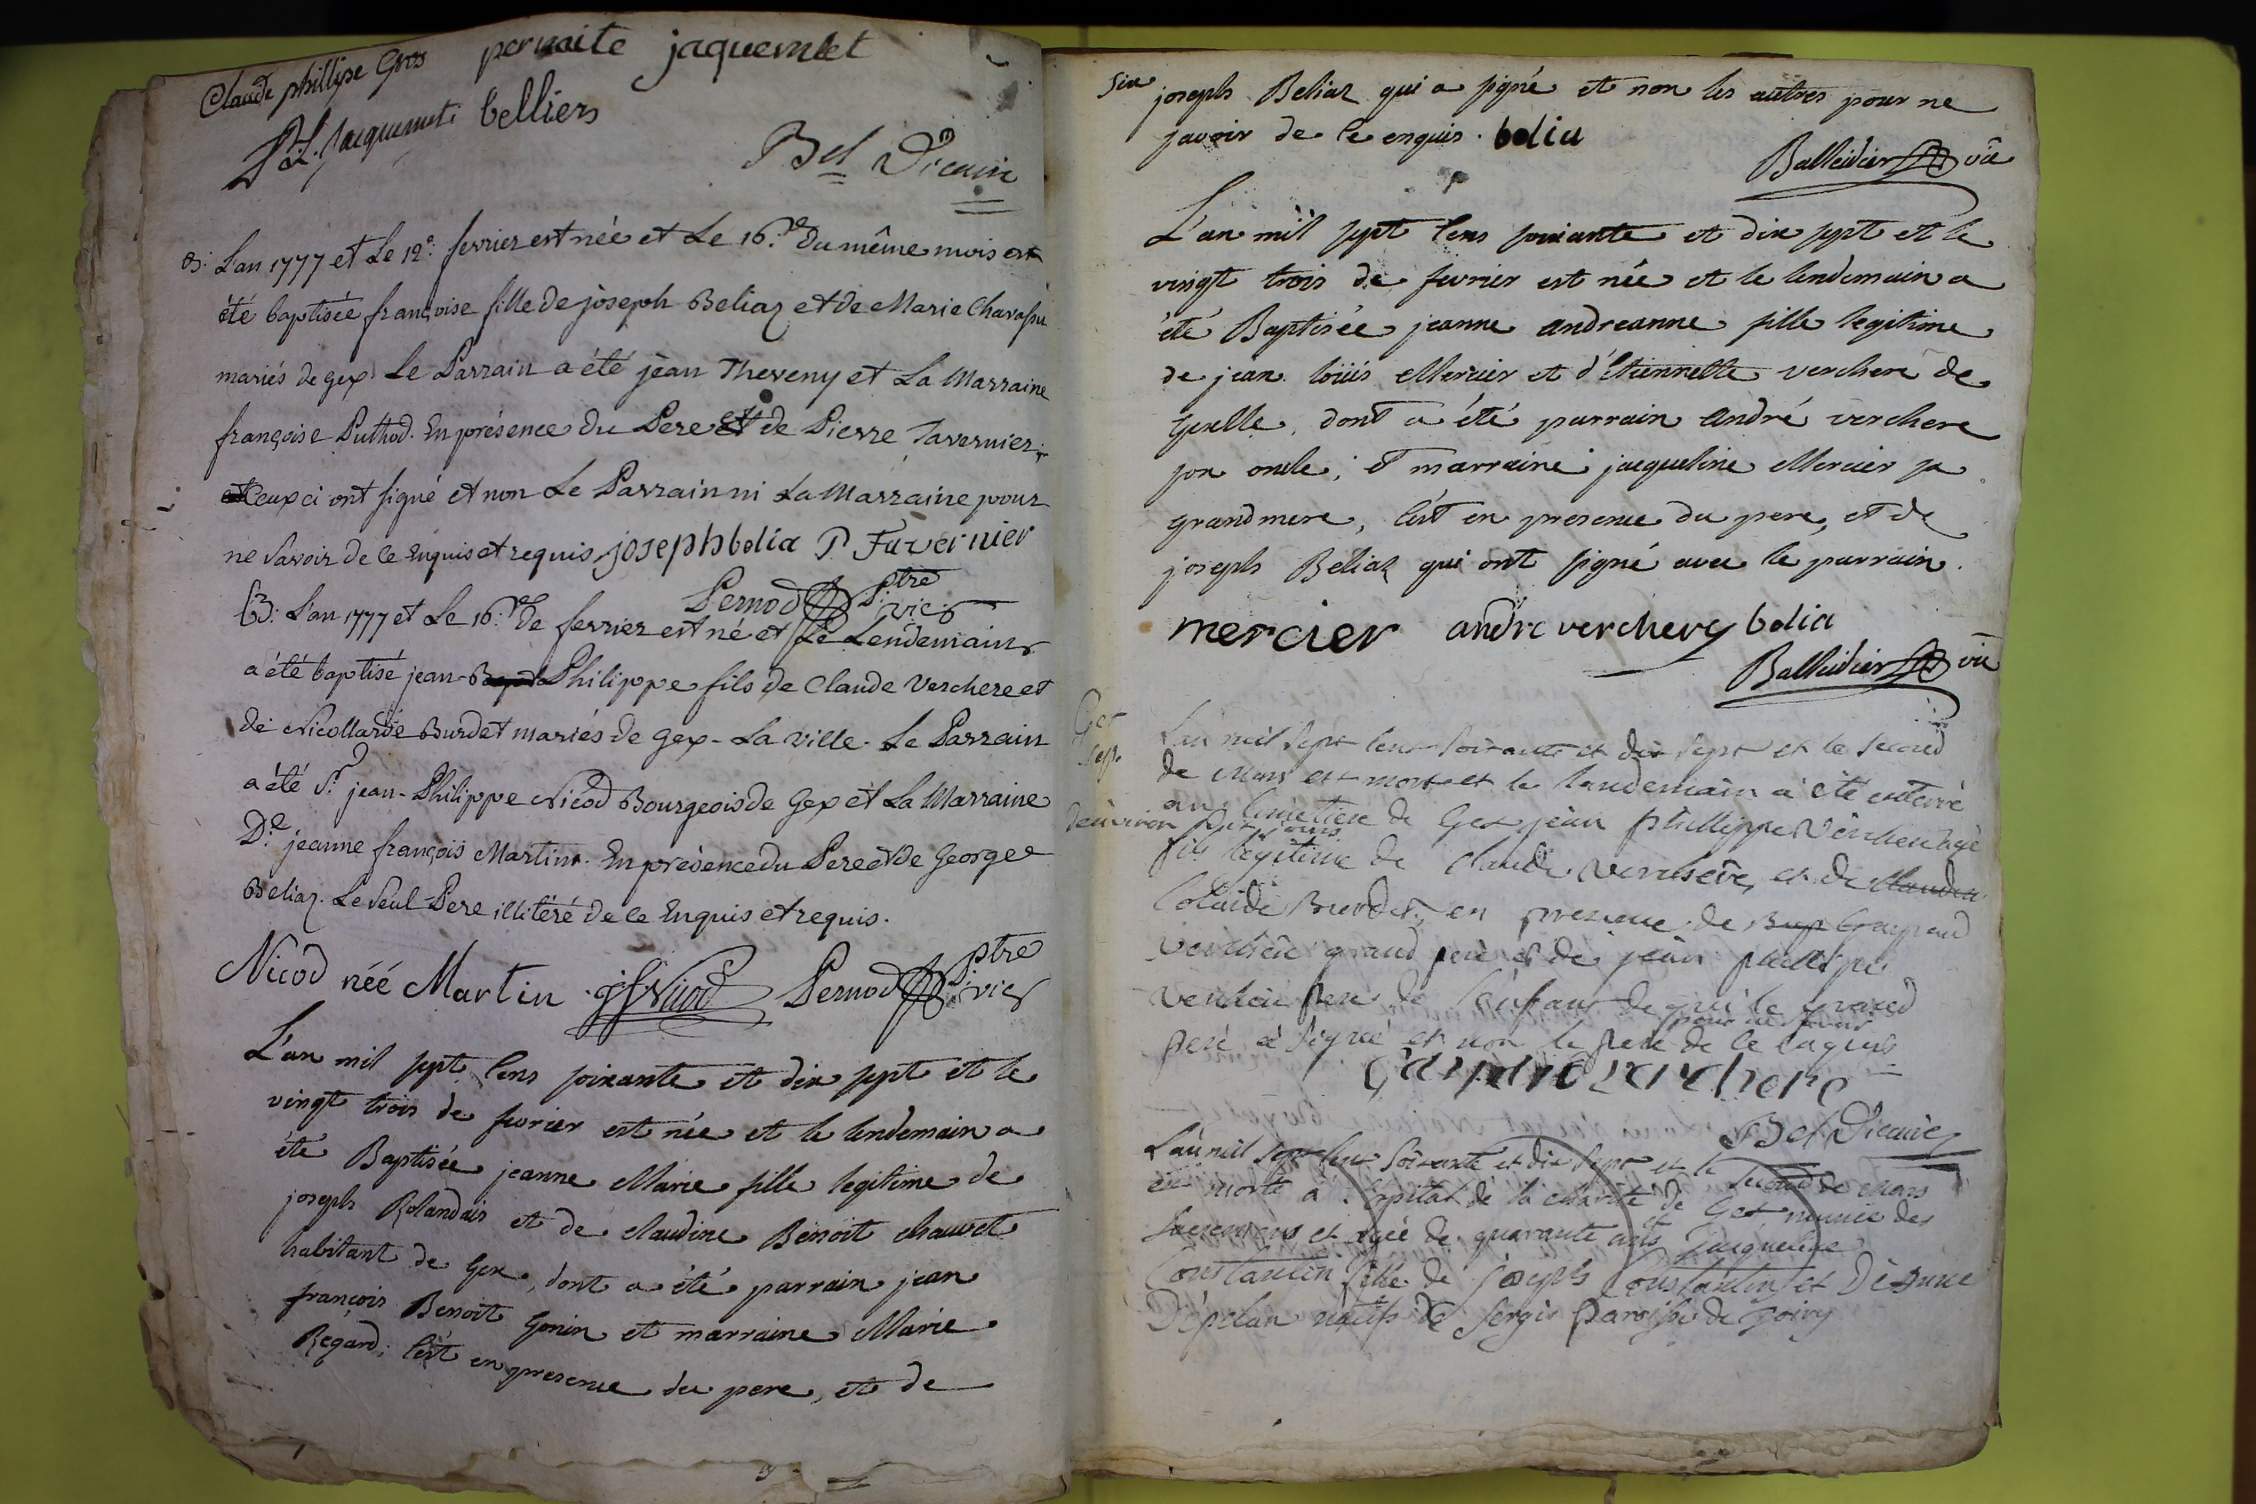 Claude phillipe Gros pernaite jaquemet
P. L. Jacquemet belliers
Bel Vicaire
B. L'an 1777 et Le 12e. fevrier est née et Le 16.me du même mois est
été baptisée françoise fille de joseph Beliaz et de Marie Chavassu
mariés de gex. Le Parrain a été jean Theveny et La Marraine
françoise Puthod. En présence du Pere et de Pierre Tavernier
ceux ci ont signé et non Le Parrain ni La Marraine pour
ne Savoir de ce Enquis et requis joseph belia P. Tavernier
Pernod Ptre vic
B. L'an 1777 et Le 16.me de fevrier est né et Le Lendemain
a été baptisé jean-Philippe fils de Claude Verchere et
de Nicollarde Burdet mariés de gex-La ville. Le Parrain
a été Sr. jean-Philippe Nicod Bourgeois de Gex et La Marraine
De. jeanne françois Martin. En présence du Pere et de George
Beliaz. Le Seul Pere illitéré de ce Enquis et requis.
Nicod néé Martin Nicod Pernod Ptre vic
L'an mil sept Cens soixante et dix sept et le
vingt trois de fevrier est née et le lendemain a
été Baptisée jeanne Marie fille legitime de
joseph Rolandais et de claudine Benoit chauvet
habitant de Gex, dont a été parrain jean
françois Benoit Gonin et marraine Marie
Regard; C'est en presence du pere, et de
joseph Beliaz qui a signé et non les autres pour ne
savoir de ce enquis. belia
Balleidier vic
L'an mil sept Cens soixante et dix sept et le
vingt trois de fevrier est née et le lendemain a
été Baptisée jeanne andreanne fille legitime
de jean loüis Mercier et d'Etiennette verchere de
Gexlle, dont a été parrain André verchere
son oncle, et marraine jacqueline Mercier sa
grandmere, C'est en presence du pere, et de
joseph Beliaz qui ont signé avec le parrain.
mercier andre verchere belia
Balleidier vic
Gex
Sep.
L'an mil Sept Cent Soixante et dix Sept et le Second
de Mars est mort et le landemain a été enterré
au Cimettiere de Gex jean phillippe Verchere agé
d'environ jours
fils legitime de Claude Verchere, et de Claudia
Colarde Burdet, en presence de Gaspard
verchere grand pere et de jean phillipe
verchere pere de l'enfant de qui le grand
pere a Signé et non le pere pour ne savoir de ce enquis
Gaspard verchere
Bel Vicaire
L'an mil Sept Cent Soixante et dix Sept et le Second de Mars
est morte a l'hopital de la charité de Gex munie des
Sacremens et agée de quarante ans Jacqueline
Constantin fille de joseph Constantin et
natifs de Sergis Paroisse de